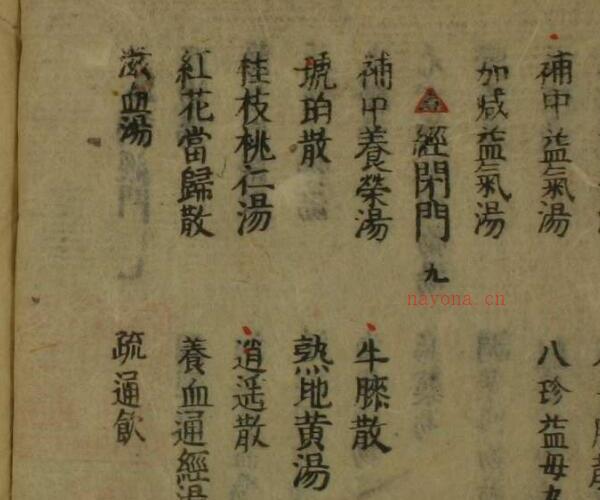 補中益氣湯
八珍益母丸
加减益氣湯
經閉門 九
補中養榮湯
牛膝散
琥珀散
熟地黄湯
桂枝桃仁湯
逍遥散
紅花當歸散
養血通經湯
滋血湯
疏通飲
nayona.cn